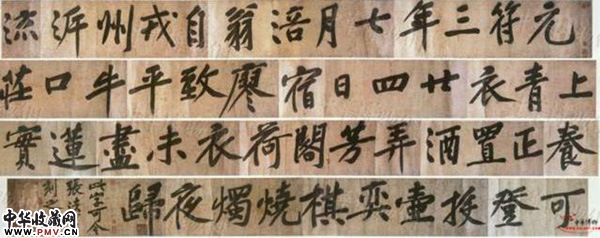 元符三年七月涪翁自戎州泝流
上青衣廿四日宿廖致平牛口莊
養正置酒弄芳閣荷衣未盡蓮實
可登投壺弈棋燒燭夜歸
此字可令
張法
刻
中华收藏网
WWW.PMV.CN